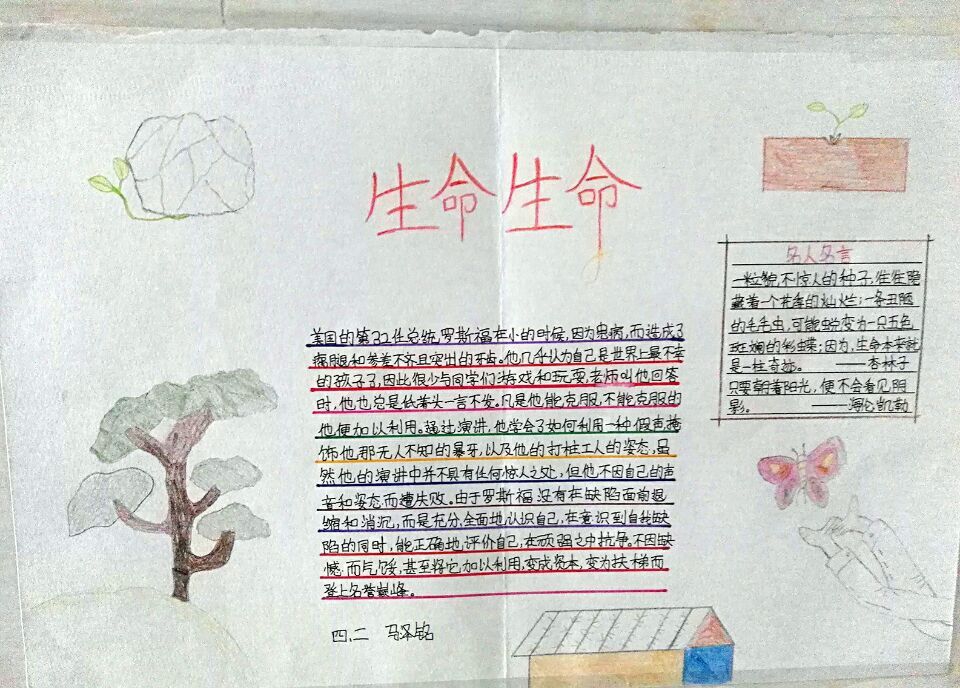 生命生命
美国的第32任总统罗斯福在小的时候,因为患病,而造成了
瘸腿和参差不齐且突出的牙齿。他几乎认为自己是世界上最不幸
的孩子了,因此很少与同学们游戏和玩耍,老师叫他回答
时,他也总是低着头一言不发。凡是他能克服,不能克服的
他便加以利用。通过演讲,他学会了如何利用一种假声掩
饰他那无人不知的暴牙,以及他的打桩工人的姿态,虽
然他的演讲中并不具有任何惊人之处,但他不因自己的声
音和姿态而遭失败。由于罗斯福没有在缺陷面前退
缩和消沉,而是充分,全面地认识自己,在意识到自我缺
陷的同时,能正确地评价自己,在顽强之中抗争,不因缺
憾而气馁,甚至将它加以利用,变成资本,变为扶梯而
登上名誉巅峰。
四.二 马泽铭
名人名言
一粒貌不惊人的种子,往往隐
藏着一个花季的灿烂;一条丑陋
的毛毛虫,可能蜕变为一只五色
斑斓的彩蝶;因为,生命本来就
是一桩奇迹。——杏林子
只要朝着阳光,便不会看见阴
影。——海伦凯勒